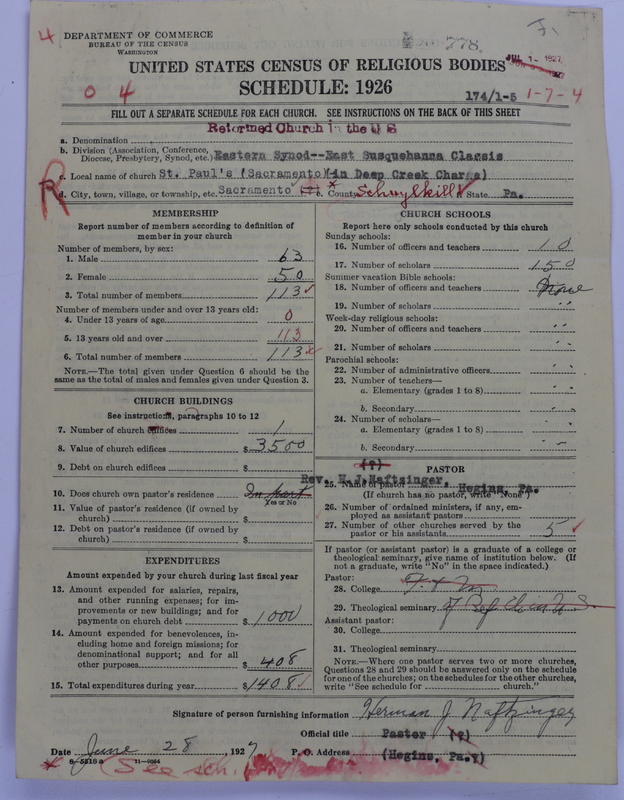 4
DEPARTMENT OF COMMERCE
BUREAU OF THE CENSUS
WASHINGTON
778.
UNITED STATES CENSUS OF RELIGIOUS BODIES
JUL 1- 1927
SCHEDULE: 1926
0 4
174/1-5
1-7-4
FILL OUT A SEPARATE SCHEDULE FOR EACH CHURCH. SEE INSTRUCTIONS ON THE BACK OF THIS SHEET
Reformed Church in the U S
a. Denomination
b. Division (Association, Conference, Diocese, Presbytery, Synod, etc.) Eastern Synod--East Susquehanna Classis
c. Local name of church St. Paul's (Sacramento)(in Deep Creek Charge)
R
d. City, town, village, or township, etc. Sacramento (?) * e. County Schuylkill f. State Pa.
MEMBERSHIP
Report number of members according to definition of member in your church
Number of members, by sex:
1. Male 63
2. Female 50
3. Total number of members 113
Number of members under and over 13 years old:
4. Under 13 years of age 0
5. 13 years old and over 113
6. Total number of members 113
NOTE.—The total given under Question 6 should be the same as the total of males and females given under Question 3.
CHURCH BUILDINGS
See instructions, paragraphs 10 to 12
7. Number of church edifices 1
8. Value of church edifices $ 3500
9. Debt on church edifices $
10. Does church own pastor's residence In part
Yes or No
11. Value of pastor's residence (if owned by church) $
12. Debt on pastor's residence (if owned by church) $
EXPENDITURES
Amount expended by your church during last fiscal year
13. Amount expended for salaries, repairs, and other running expenses; for improvements or new buildings; and for payments on church debt $ 1000
14. Amount expended for benevolences, including home and foreign missions; for denominational support; and for all other purposes $ 408
15. Total expenditures during year $ 1408
CHURCH SCHOOLS
Report here only schools conducted by this church
Sunday schools:
16. Number of officers and teachers 10
17. Number of scholars 150
Summer vacation Bible schools:
18. Number of officers and teachers None
19. Number of scholars "
Week-day religious schools:
20. Number of officers and teachers "
21. Number of scholars "
Parochial schools:
22. Number of administrative officers "
23. Number of teachers—
a. Elementary (grades 1 to 8) "
b. Secondary "
24. Number of scholars—
a. Elementary (grades 1 to 8) "
b. Secondary "
(?)
PASTOR
Rev. H.J.Naftzinger, Hegins, Pa.
25. Name of pastor
(If church has no pastor, write "None")
26. Number of ordained ministers, if any, employed as assistant pastors
27. Number of other churches served by the pastor or his assistants 5
If pastor (or assistant pastor) is a graduate of a college or theological seminary, give name of institution below. (If not a graduate, write "No" in the space indicated.)
Pastor:
28. College F. & M
29. Theological seminary of Ref Ch in U.S.
Assistant pastor:
30. College
31. Theological seminary
NOTE.—Where one pastor serves two or more churches, Questions 28 and 29 should be answered only on the schedule for one of the churches; on the schedules for the other churches, write "See schedule for church."
Signature of person furnishing information Herman J. Naftzinger
Official title Pastor (?)
Date June 28, 1927 P. O. Address (Hegins, Pa.?)
8-5518 a 11-9064
* See sch.